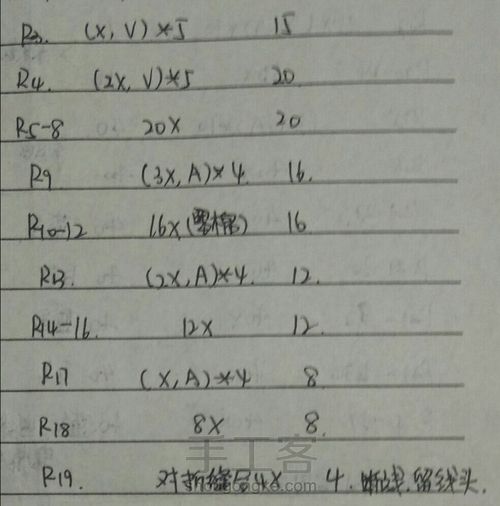 R3. (X, V)*5 15
R4. (2X, V)*5 20
R5-8 20X 20
R9 (3X, A)*4. 16.
R10-12 16X(塞棉) 16
R13. (2X, A)*4. 12.
R14-16. 12X 12.
R17 (X, A)*4 8
R18 8X 8.
手工客
R19. 对折缝合4X 4. 断线.留线头.